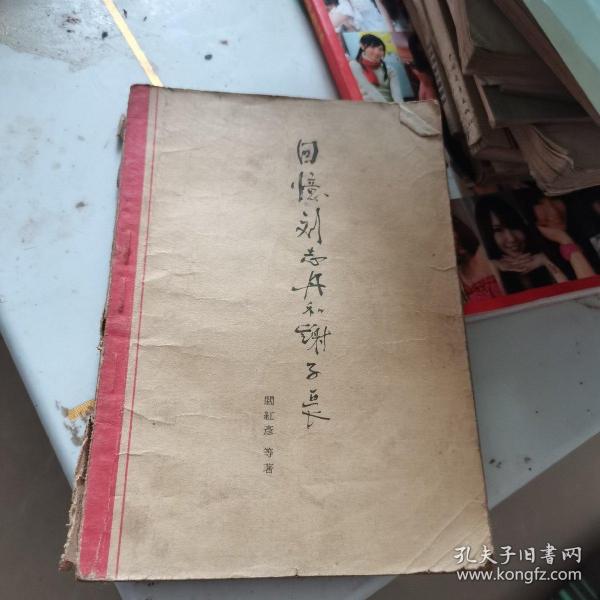 回憶刘志丹和謝子長
閻紅彥 等著
孔夫子旧書网
www.kongfz.com